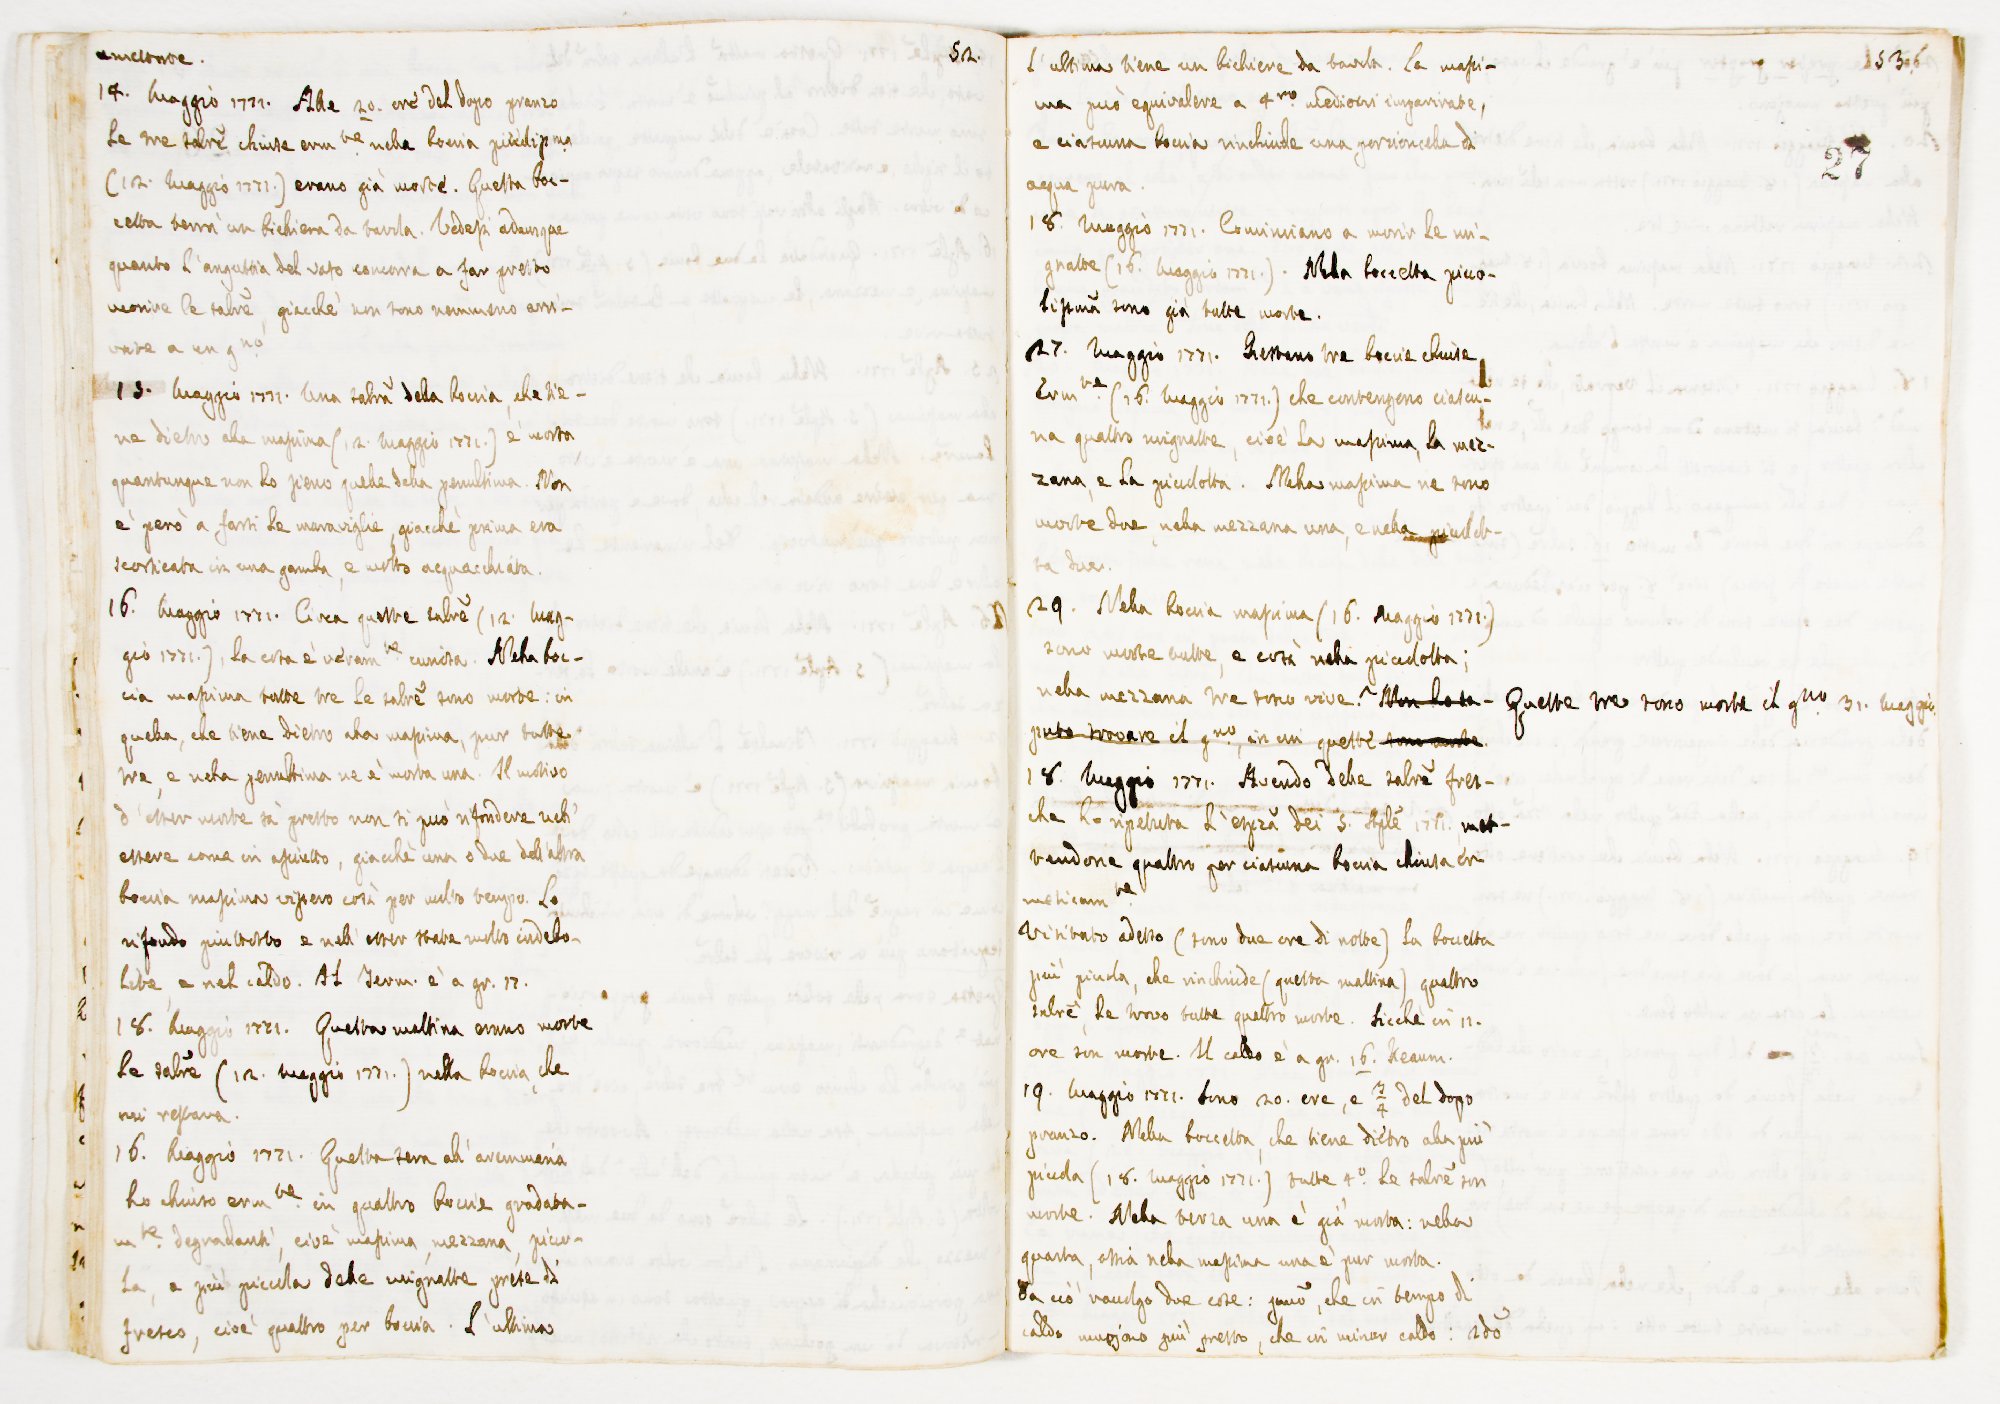 52.
14. Maggio 1771. Alle 20. ore del dopo pranzo
le tre salrẽ chiuse erm.te nella boccia piccoliss.ma
(12. Maggio 1771.) erano già morte. Questa boc-
cetta terrà un bichiera da tavola. Vedesi adunque
quanto l'angustia del vaso concorra a far presto
morire le salrẽ, giacchè non sono nemmeno arri-
vate a un g.no
13. Maggio 1771. Una salrã della boccia, che tie-
ne dietro alla massima (12. Maggio 1771.) è morta
quantunque non lo sieno quelle della penultima. Non
è però a farsi le maraviglie, giacchè prima era
scorticata in una gamba, e molto acquacchiata.
16. Maggio 1771. Circa queste salrẽ (12. Mag-
gio 1771.), la cosa è veram.te curiosa. Nella boc-
cia massima tutte tre le salrẽ sono morte: in
quella, che tiene dietro alla massima, pur tutte
tre, e nella penultima ne è morta una. Il motivo
d'esser morte sì presto non si può rifondere nell'
essere come in asciutto, giacchè una o due dell'altra
boccia massima vissero così per molto tempo. Lo
rifondo piuttosto e nell'esser state molto indebo-
lite, e nel caldo. Il Term. è a gr. 17.
18. Maggio 1771. Questa mattina erano morte
le salrẽ (12. Maggio 1771.) nella boccia, che
mi restava.
16. Maggio 1771. Questa sera all'avemmaria
ho chiuso erm.te in quattro boccie gradata-
m.te degradanti, cioè massima, mezzana, picco-
la, e più piccola delle mignatte prese di
fresco, cioè quattro per boccia. L'ultima
53
27
L'ultima tiene un bichiere da tavola. La massi-
ma può equivalere a 4.ro mediocri inguaristate,
e ciascuna boccia rinchiude una porzioncella di
acqua pura.
18. Maggio 1771. Cominciano a morir le mi-
gnatte (16. Maggio 1771.). Nella boccetta picco-
lissimã sono già tutte morte.
27. Maggio 1771. Restano tre boccie chiuse
Erm.te (16. Maggio 1771.) che contengono ciascu-
na quattro mignatte, cioè la massima, la mez-
zana, e la piccolotta. Nella massima ne sono
morte due, nella mezzana una, e nella piccolot-
ta due.
29. Nella boccia massima (16. Maggio 1771.)
sono morte tutte, e così nella piccolotta;
nella mezzana tre sono vive. Non ho sa- Queste tre sono morte il g.no 31. Maggio.
puto trovare il g.no, in cui queste sono morte.
18. Maggio 1771. Avendo delle salrẽ fres-
che ho ripetuta l'espza dei 5. Aple 1771. met-
tendone quattro per ciascuna boccia chiusa er-
meticam.te
Visitato adesso (sono due ore di notte) la boccetta
più piccola, che rinchiude (questa mattina) quattro
salrẽ, le trovo tutte quattro morte. Sicchè in 12.
ore son morte. Il caldo è a gr. 16. Reaum.
19. Maggio 1771. Sono 20. ore, e 3/4 del dopo
pranzo. Nella boccetta, che tiene dietro alla più
piccola (18. Maggio 1771.) tutte 4.o le salrẽ son
morte. Nella terza una è già morta: nella
quarta, ossia nella massima una è pur morta.
Da ciò raccolgo due cose: pmõ, che in tempo di
caldo muojono più presto, che in minor caldo: 2dõ